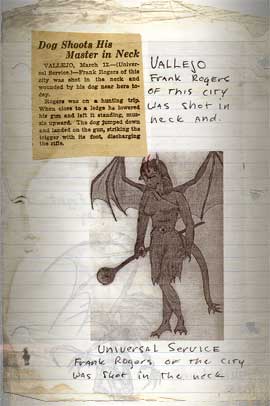 Dog Shoots His
Master in Neck
VALLEJO, March 12.—(Univer-
sal Service.)—Frank Rogers of this
city was shot in the neck and
wounded by his dog near here to-
day.
Rogers was on a hunting trip.
When close to a ledge he lowered
his gun and left it standing, muz-
zle upward. The dog jumped down
and landed on the gun, striking the
trigger with its foot, discharging
the rifle.
VALLEJO
Frank Rogers
OF this city
was shot in
neck and.
UNIVERSAL SERVICE
Frank Rogers of the city
was shot in the neck